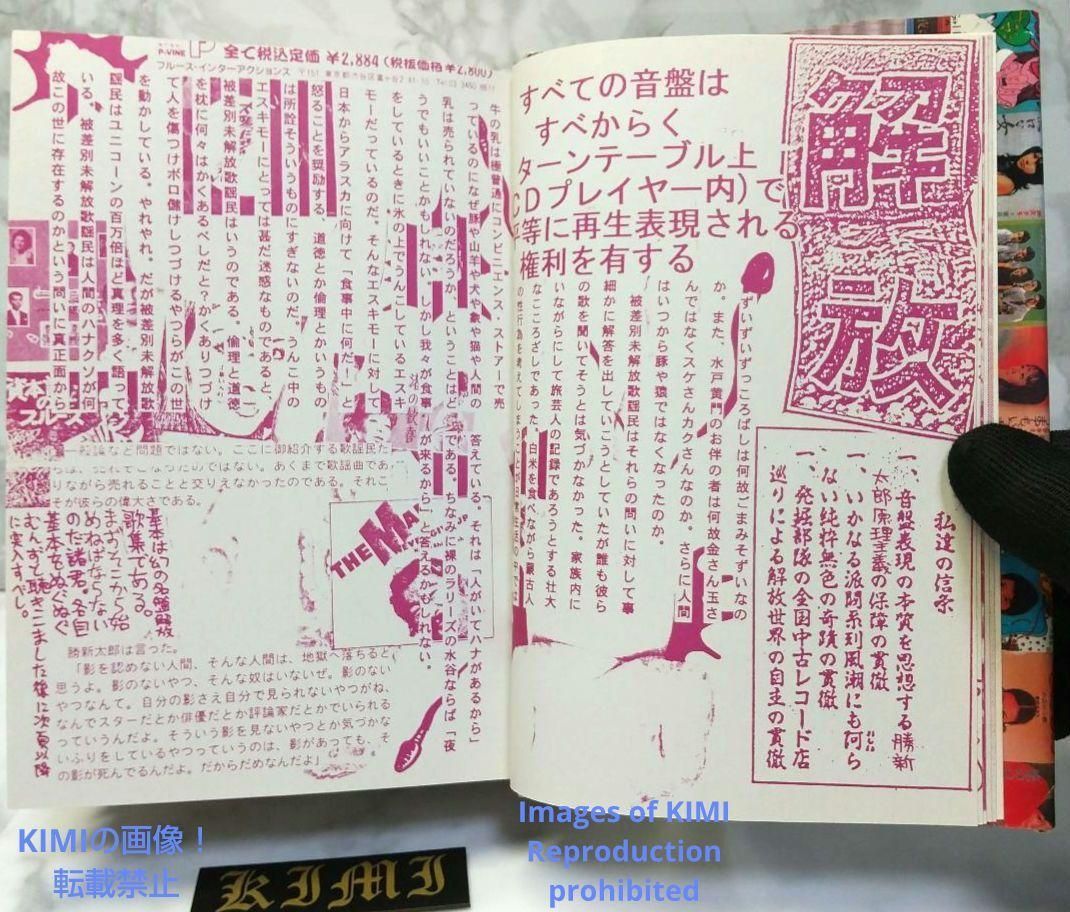 解放
すべての音盤は
すべからく
ターンテーブル上
CDプレイヤー内)で
等に再生表現される
権利を有する
私達の信条
一、音盤表現の本質を思想する勝新
太郎原理主義の保障の貫徹
一、いかなる派閥系列風潮にも何ら
ない純粋無色の奇蹟の貫徹
一、発掘部隊の全国中古レコード店
巡りによる解放世界の自主の貫徹
ずいずいずっころばしは何故ごまみそずいなの
か。また、水戸黄門のお伴の者は何故金さん玉さ
んではなくスケさんカクさんなのか。さらに人間
はいつから豚や猿ではなくなったのか。
被差別未解放歌謡民はそれらの問いに対して事
細かに解答を出していこうとしていたが誰も彼ら
の歌を聞いてそうとは気づかなかった。家族内に
いながらにして旅芸人の記録であろうとする壮大
なこころざしであった。白米を食べながら蒙古人
P-VINE LP 全て税込定価 ¥2,884 (税抜価格¥2,800)
ブルース・インターアクションズ
牛の乳は極普通にコンビニエンス・ストアーで売
っているのになぜ豚や山羊や犬や象や猫や人間の
乳は売られていないのだろうか、ということはど
うでもいいことかもしれない。しかし我々が食事
をしているときに氷の上でうんこしているエスキ
モーだっているのだ。そんなエスキモーに対して
日本からアラスカに向けて「食事中に何だ!」と
怒ることを奨励する、道徳とか倫理とかいうもの
は所詮そういうものにすぎないのだ。うんこ中の
エスキモーにとっては甚だ迷惑なものであると
被差別未解放歌謡民はいうのである。倫理と道徳
を枕に何々はかくあるべしだと?かくありつづけ
て人を傷つけボロ儲けしつづけるやつらがこの世
を動かしている。やれやれ。だが被差別未解放歌
謡民はユニコーンの百万倍ほど真理を多く語って
いる。被差別未解放歌謡民は人間のハナクソが何
故この世に存在するのかという問いに真正面から
答えている。それは「人がいてハナがあるから」
である。ちなみに裸のラリーズの水谷ならば「夜
が来るから」と答えるかもしれない。
など問題ではない。ここに御紹介する歌謡民た
あくまで歌謡曲であ
りながら売れることと交りえなかったのである。それこ
そが彼らの偉大さである。
THE
基本は幻の名盤解放
歌集である。
まずはそこから始
めねばならない
のだ諸君。各自
基本をぬぐぬぐ
むんずと聴きこました後に次頁以降
に突入すべし。
勝新太郎は言った。
「影を認めない人間、そんな人間は、地獄へ落ちると
思うよ。影のないやつ、そんな奴はいないぜ。影のない
やつなんて。自分の影さえ自分で見られないやつがね、
なんでスターだとか俳優だとか評論家だとかでいられる
なっていうんだよ。そういう影を見ないやつとか気づかな
いふりをしているやつっていうのは、影があっても、そ
の影が死んでるんだよ。だからだめなんだよ」
KIMIの画像!
転載禁止
KIMI
Images of KIMI
Reproduction
prohibited